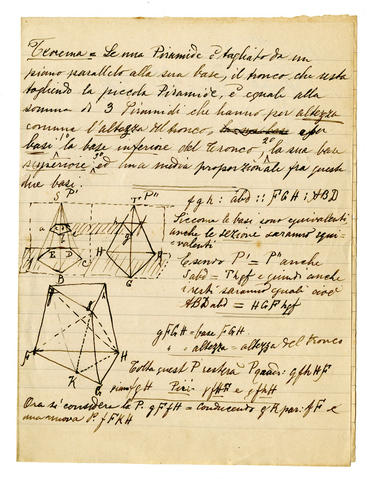 Teorema = Se una Piramide è tagliata da un
piano parallelo alla sua base, il tronco, che resta
togliendo la piccola Piramide, è eguale alla
somma di 3 Piramidi che hanno per altezza
comune l'altezza del tronco, e per
basi 1° la base inferiore del Tronco, 2° la sua base
superiore 3° ed una media proporzionale fra queste
due basi.
S P' T P''
fgh : abd :: FGH : ABD
Siccome le basi sono equivalenti
anche le sezione saranno equi-
valenti
Essendo P' = P'' anche
Sabd = Thgf e quindi anche
i resti saranno eguali cioè
ABDabd = HGFhgf
gFGH = base FGH.
" " altezza = altezza del tronco
Tolta quest P resterà P quadr: gfhHF
Pir: gfHF e gfhH
Ora si considera la P. gFfH = conducendo gK par: fF e
una nuova P. fFKH